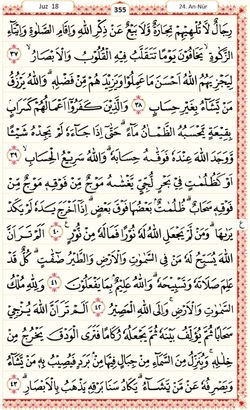 Juz 18
355
24. An-Nūr
رِجَالٌ لَّا تُلْهِيْهِمْ تِجَارَةٌ وَّلَا بَيْعٌ عَنْ ذِكْرِ اللّٰهِ وَاِقَامِ الصَّلٰوةِ وَاِيْتَاۤءِ
الزَّكٰوةِ ۙ يَخَافُوْنَ يَوْمًا تَتَقَلَّبُ فِيْهِ الْقُلُوْبُ وَالْاَبْصَارُ ۙ ٣٧
لِيَجْزِيَهُمُ اللّٰهُ اَحْسَنَ مَا عَمِلُوْا وَيَزِيْدَهُمْ مِّنْ فَضْلِهٖ ۗ وَاللّٰهُ يَرْزُقُ
مَنْ يَّشَاۤءُ بِغَيْرِ حِسَابٍ ٣٨ وَالَّذِيْنَ كَفَرُوْٓا اَعْمَالُهُمْ كَسَرَابٍۢ
بِقِيْعَةٍ يَّحْسَبُهُ الظَّمْاٰنُ مَاۤءً ۗ حَتّٰٓى اِذَا جَاۤءَهٗ لَمْ يَجِدْهُ شَيْـًٔا
وَّوَجَدَ اللّٰهَ عِنْدَهٗ فَوَفّٰىهُ حِسَابَهٗ ۗ وَاللّٰهُ سَرِيْعُ الْحِسَابِ ۙ ٣٩
اَوْ كَظُلُمٰتٍ فِيْ بَحْرٍ لُّجِّيٍّ يَّغْشٰىهُ مَوْجٌ مِّنْ فَوْقِهٖ مَوْجٌ مِّنْ
فَوْقِهٖ سَحَابٌ ۗ ظُلُمٰتٌۢ بَعْضُهَا فَوْقَ بَعْضٍ ۗ اِذَآ اَخْرَجَ يَدَهٗ لَمْ يَكَدْ
يَرٰىهَا ۗ وَمَنْ لَّمْ يَجْعَلِ اللّٰهُ لَهٗ نُوْرًا فَمَا لَهٗ مِنْ نُّوْرٍ ٤٠ اَلَمْ تَرَ اَنَّ
اللّٰهَ يُسَبِّحُ لَهٗ مَنْ فِى السَّمٰوٰتِ وَالْاَرْضِ وَالطَّيْرُ صٰۤفّٰتٍ ۗ كُلٌّ قَدْ
عَلِمَ صَلَاتَهٗ وَتَسْبِيْحَهٗ ۗ وَاللّٰهُ عَلِيْمٌۢ بِمَا يَفْعَلُوْنَ ٤١ وَلِلّٰهِ مُلْكُ
السَّمٰوٰتِ وَالْاَرْضِ ۚ وَاِلَى اللّٰهِ الْمَصِيْرُ ٤٢ اَلَمْ تَرَ اَنَّ اللّٰهَ يُزْجِيْ
سَحَابًا ثُمَّ يُؤَلِّفُ بَيْنَهٗ ثُمَّ يَجْعَلُهٗ رُكَامًا فَتَرَى الْوَدْقَ يَخْرُجُ مِنْ
خِلٰلِهٖ ۚ وَيُنَزِّلُ مِنَ السَّمَاۤءِ مِنْ جِبَالٍ فِيْهَا مِنْۢ بَرَدٍ فَيُصِيْبُ بِهٖ مَنْ يَّشَاۤءُ
وَيَصْرِفُهٗ عَنْ مَّنْ يَّشَاۤءُ ۗ يَكَادُ سَنَا بَرْقِهٖ يَذْهَبُ بِالْاَبْصَارِ ۗ ٤٣